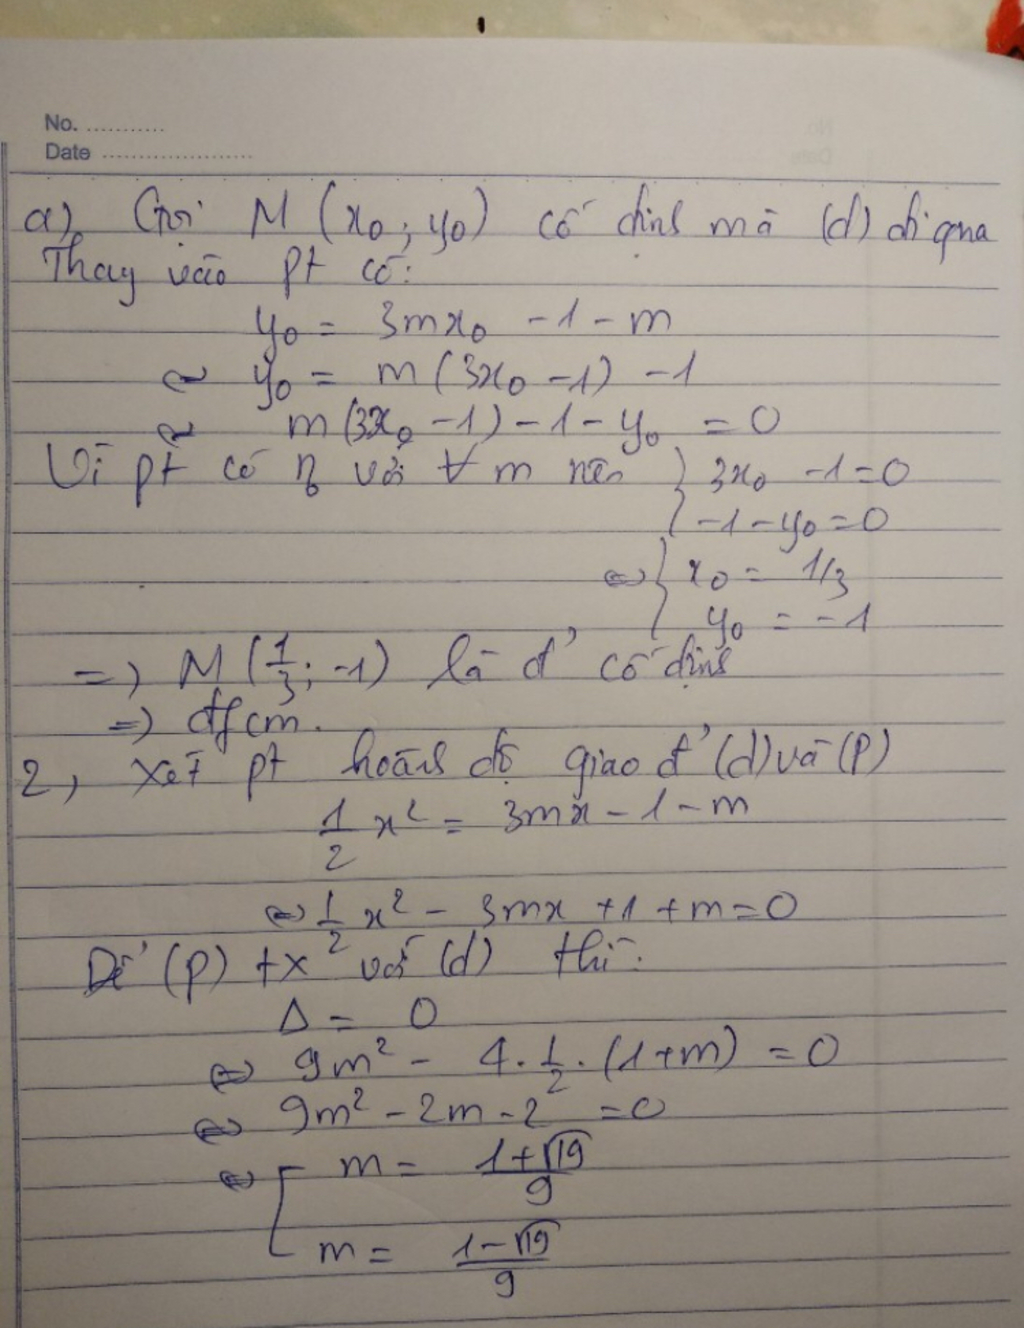 No. ...........
Date ......................
a), Gọi M (x₀; y₀) cố định mà (d) đi qua
Thay vào pt có:
y₀ = 3mx₀ - 1 - m
⇔ y₀ = m (3x₀ - 1) - 1
⇔ m (3x₀ - 1) - 1 - y₀ = 0
Vì pt có n₀ với ∀ m nên { 3x₀ - 1 = 0
-1 - y₀ = 0
⇔ { x₀ = 1/3
y₀ = -1
=> M (1/3; -1) là đ' cố định
=> đfcm.
2, Xét pt hoành độ giao đ' (d) và (P)
1/2 x² = 3mx - 1 - m
⇔ 1/2 x² - 3mx + 1 + m = 0
Để (P) tx² với (d) thì:
Δ = 0
⇔ 9m² - 4. 1/2 . (1+m) = 0
⇔ 9m² - 2m - 2 = 0
⇔ [ m = (1+√19)/9
m = (1-√19)/9